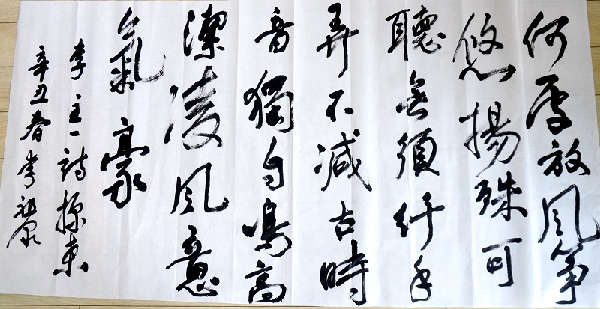 何處放風箏
悠揚殊可
聽無須纤手
弄不減古時
音獨自鳴高
潔凌風意
氣豪
李主一詩
辛丑春李